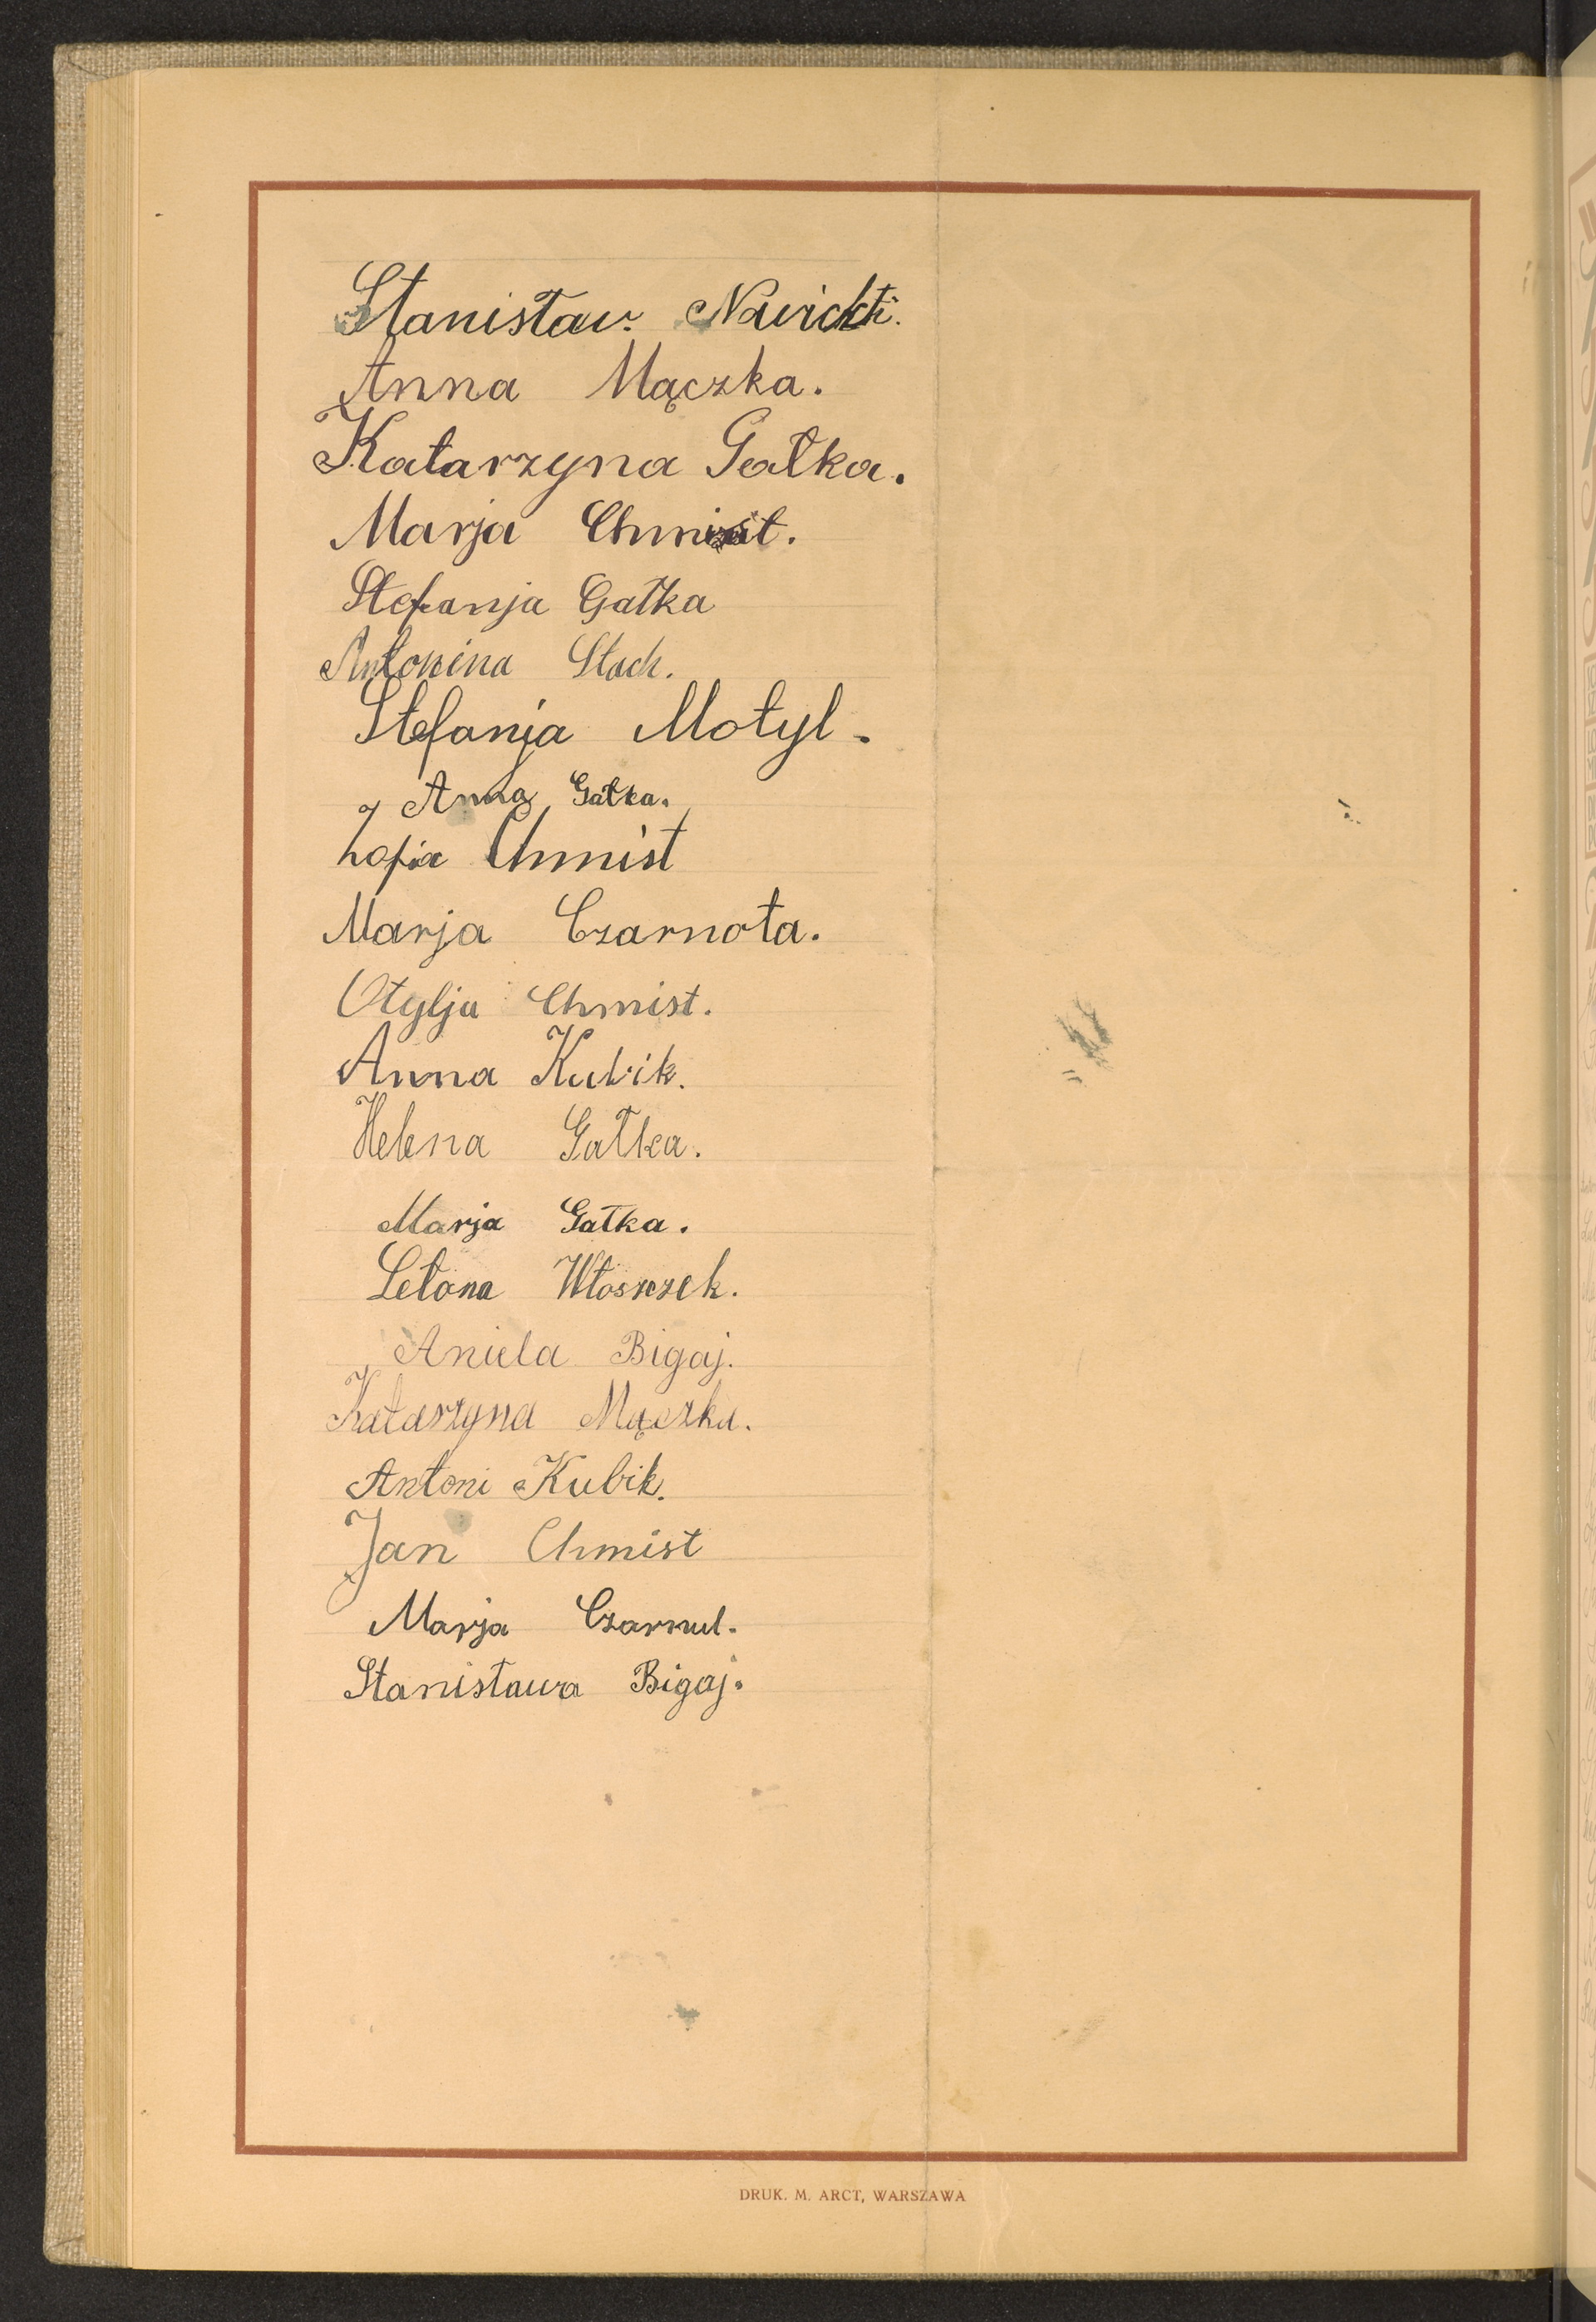 Stanisław Nawicki.
Anna Mączka.
Katarzyna Gałka.
Marja Chmist.
Stefanja Gałka
Antonina Stach.
Stefanja Motyl.
Anna Gałka.
Zofia Chmist
Marja Czarnota.
Otylja Chmist.
Anna Kubik.
Helena Gałka.
Marja Gałka.
Włoszczek.
Aniela Bigaj.
Katarzyna Mączka.
Antoni Kubik.
Jan Chmist
Marja Czarnul.
Stanisława Bigaj.
DRUK. M. ARCT, WARSZAWA